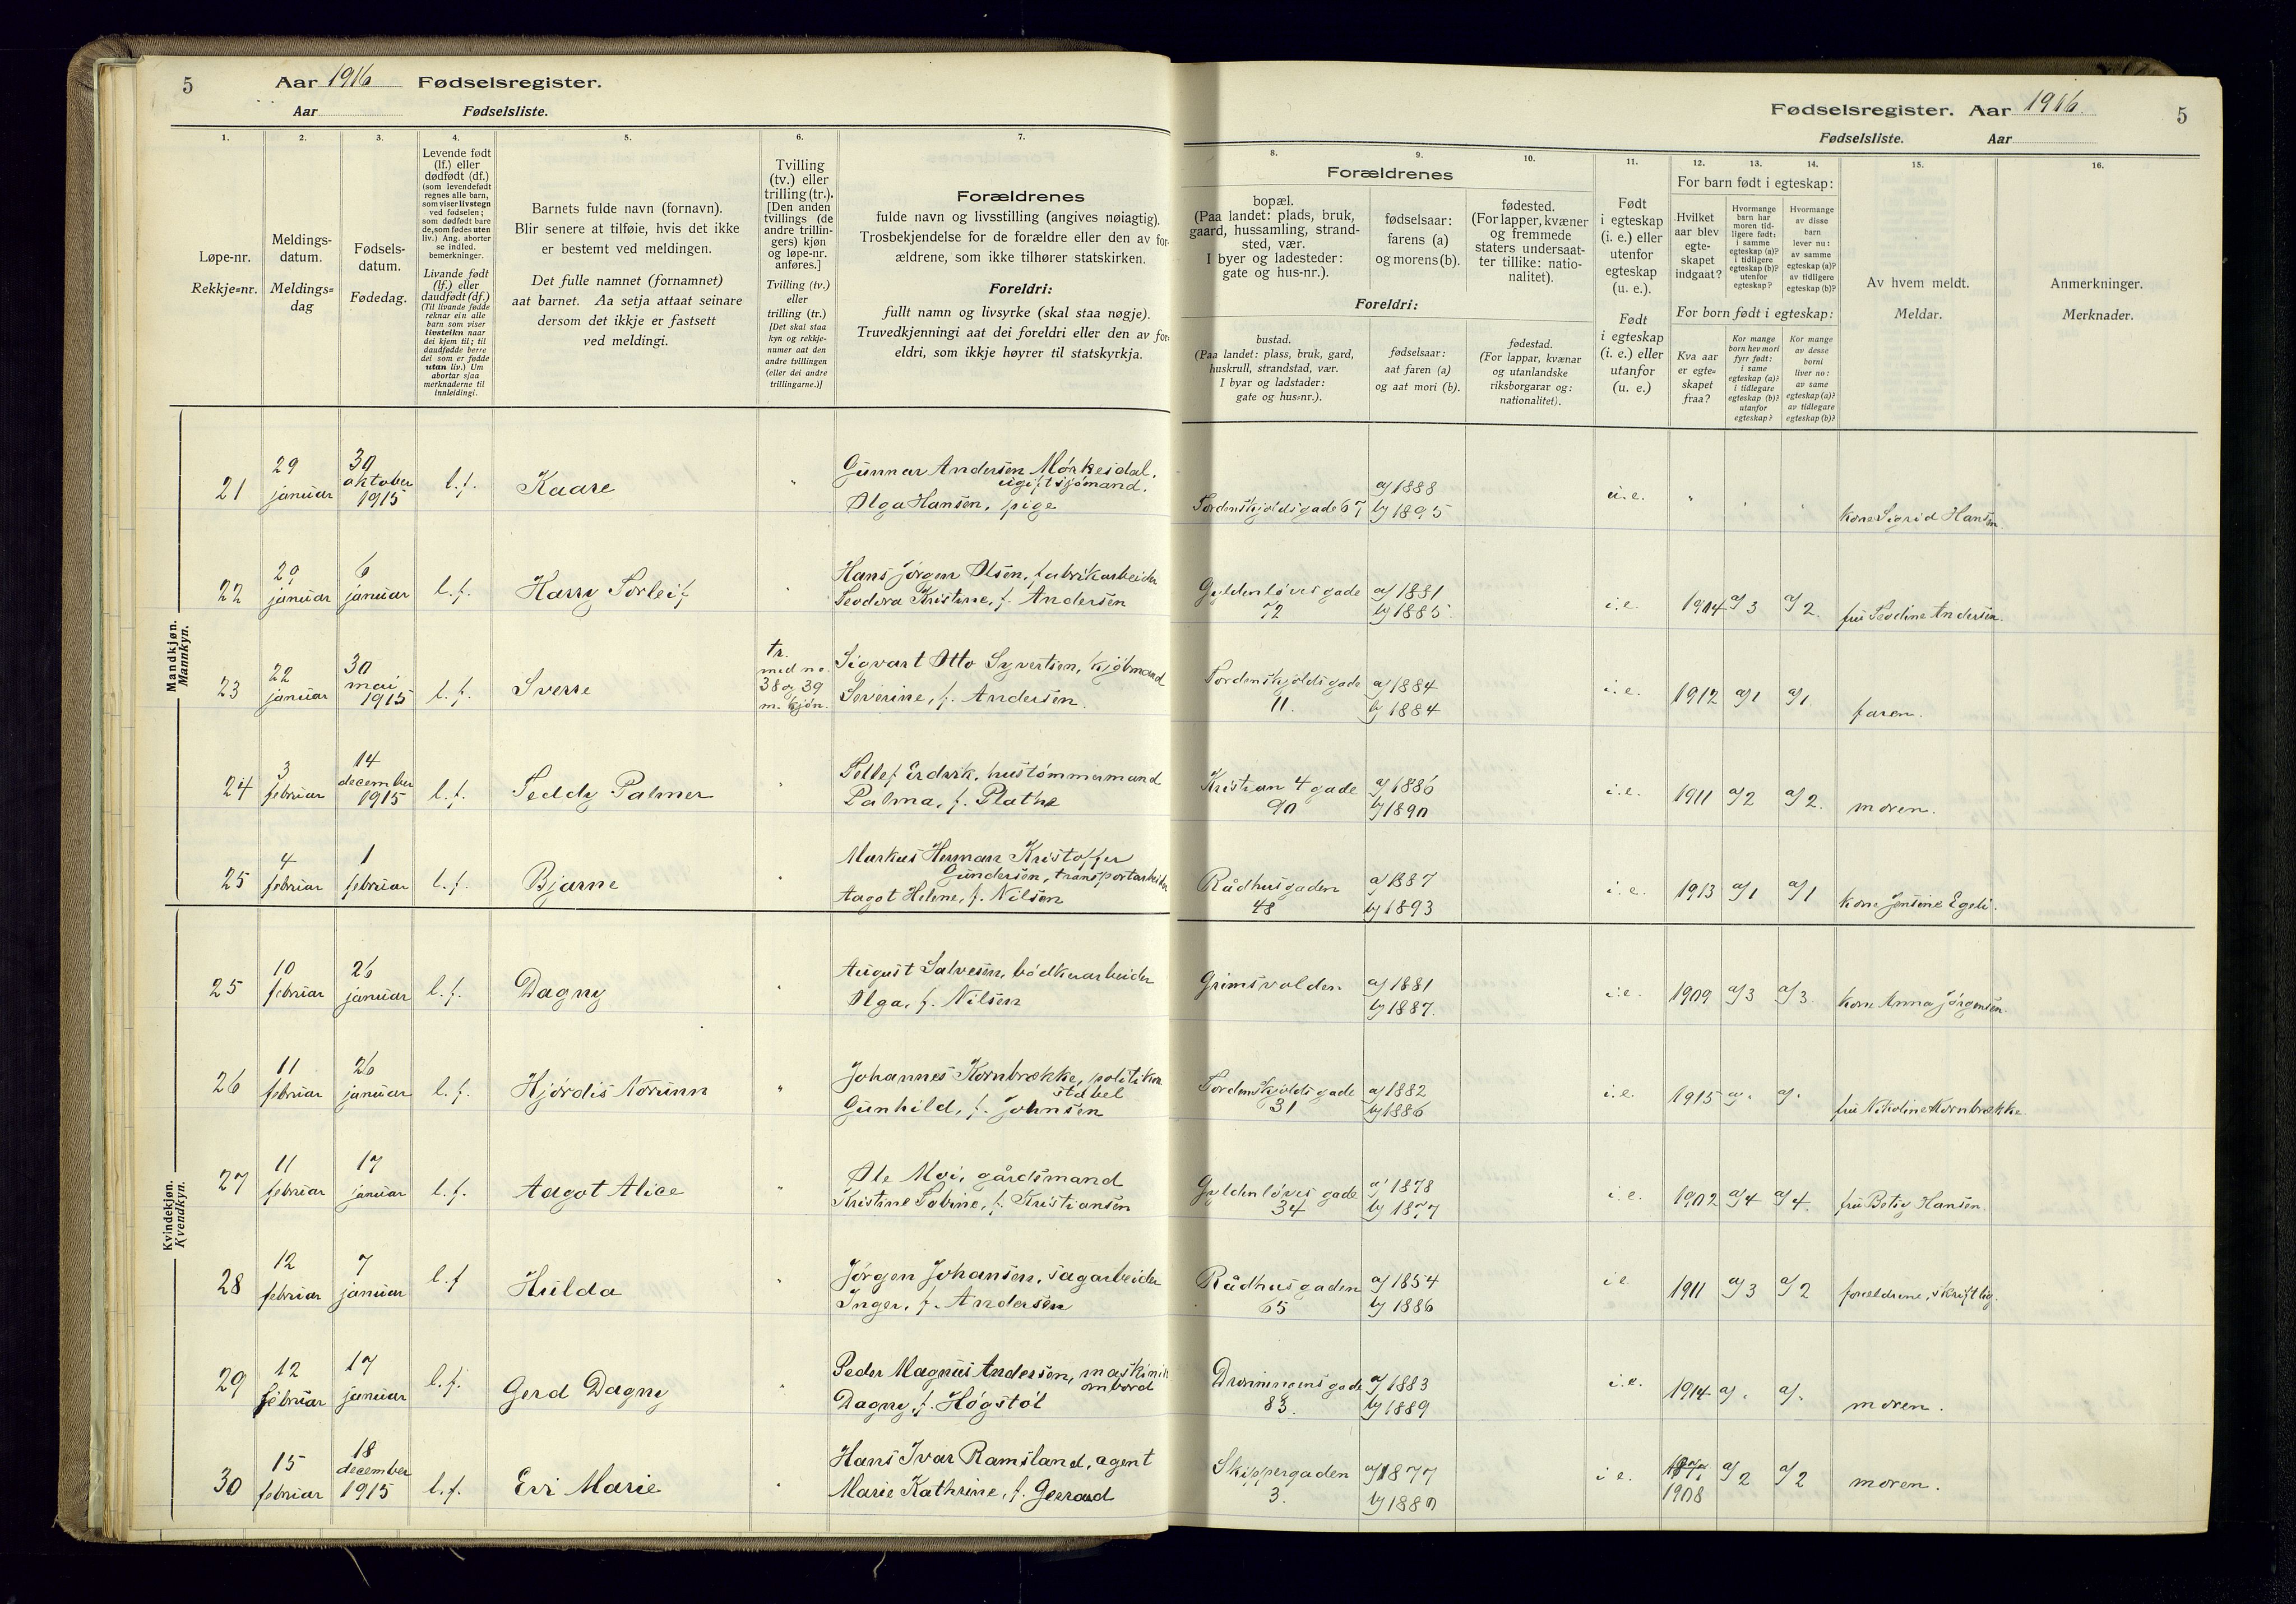 5 Aar 1916 Fødselsregister.
Aar Fødselsliste.
Fødselsregister. Aar 1916. 5
Fødselsliste. Aar
1. 2. 3. 4. 5. 6. 7. 8. 9. 10. 11. 12. 13. 14. 15. 16.
Løpe-nr.
Rekkje=nr.
Meldings-
datum.
Meldings=
dag
Fødsels-
datum.
Fødedag.
Levende født
(lf.) eller
dødfødt (df.)
(som levendefødt
regnes alle barn,
som viser livstegn
ved fødselen;
som dødfødt bare
de, som fødes uten
liv.) Ang. aborter
se indled.
bemerkninger.
Livande født
(lf.) eller
daudfødt (df.)
(Til livande fødde
reknar ein alle
barn som viser
livsteikn naar
dei kjem til; til
daudfødde berre
dei som er fødde
utan liv.) Um
abortar sjaa
merknaderne til
innleidingi.
Barnets fulde navn (fornavn).
Blir senere at tilføie, hvis det ikke
er bestemt ved meldingen.
Det fulle namnet (fornamnet)
aat barnet. Aa setja attaat seinare
dersom det ikkje er fastsett
ved meldingi.
Tvilling
(tv.) eller
trilling (tr.).
[Den anden
tvillings (de
andre trillin-
gers) kjøn
og løpe-nr.
anføres.]
Tvilling (tv.)
eller
trilling (tr.)
[Det skal staa
kyn og rekkje-
numer aat den
andre tvillingen
(eller dei andre
trillingarne.)]
Forældrenes
fulde navn og livsstilling (angives nøiagtig).
Trosbekjendelse for de forældre eller den av for-
ældrene, som ikke tilhører statskirken.
Foreldri:
fullt namn og livsyrke (skal staa nøgje).
Truvedkjenningi aat dei foreldri eller den av for-
eldri, som ikkje høyrer til statskyrkja.
Forældrenes
bopæl.
(Paa landet: plads, bruk,
gaard, hussamling, strand-
sted, vær.
I byer og ladesteder:
gate og hus-nr.).
fødselsaar:
farens (a)
og morens (b).
fødested.
(For lapper, kvæner
og fremmede
staters undersaat-
ter tillike: natio-
nalitet).
Foreldri:
bustad.
(Paa landet: plass, bruk, gard,
huskrull, strandstad, vær.
I byar og ladstader:
gate og hus=nr.).
fødselsaar:
aat faren (a)
og aat mori (b).
fødestad.
(For lappar, kvænar
og utanlandske
riksborgarar og:
nationalitet).
Født
i egteskap
(i. e.) eller
utenfor
egteskap
(u. e.).
Født
i egteskap
(i. e.) eller
utanfor
(u. e.)
For barn født i egteskap:
Hvilket
aar blev
egte-
skapet
indgaat?
Hvormange
barn har
moren tid-
ligere født:
i samme
egteskap (a)?
i tidligere
egteskap (b)?
utenfor
egteskap?
Hvormange
av disse
barn
lever nu:
av samme
egteskap (a)?
av tidligere
egteskap (b)?
For born født i egteskap:
Kva aar
er egte=
skapet
fraa?
Kor mange
born hev mori
fyrr født:
i same
egteskap (a)?
i tidlegare
egteskap (b)?
utanfor
egteskap?
Kor mange
av desse
borni
liver no:
av same
egteskap (a)?
av tidlegare
egteskap (b)?
Av hvem meldt.
Meldar.
Anmerkninger.
Merknader.
Mandkjøn.
Mannkyn.
21 29 januar 30 oktober 1915 l.f. Kaare " Gunnar Andersen Mørkesdal,
ugift sjømand.
Olga Hansen, pige
Tordenskjoldsgade 67, a) 1888
b) 1895 u.e. " kone Sigrid Hansen
22 29 januar 6 januar l.f. Harry Torleif " Hans Jørgen Olsen, fabrikarbeider
Teodora Kristine, f. Andersen
Gyldenløvesgade 72 a) 1881
b) 1885. i.e. 1904 a) 3 a) 2. fru Teodine Andersen.
23 22 januar 30 mai 1915 l.f. Sverre tr.
med no
38 og 39
m. kjøn.
Sigvart Otto Syvertsen, kjøbmand
Severine, f. Andersen.
Tordenskjoldsgade 11. a) 1884
b) 1884 i.e. 1912 a) 1 a) 1. faren.
24 3 februar 14 december 1915 l.f. Teddy Palmer " Tellef Erdvik, hustømmermand
Palma, f. Plathe
Kristian 4 gade 90 a) 1886
b) 1890 i.e. 1911 a) 2 a) 2. moren.
25 4 februar 1 februar l.f. Bjarne " Markus Herman Kristoffer
Gundersen, transportarbeider
Aagot Helene, f. Nilsen
Rådhusgaden 48 a) 1887
b) 1893 i.e. 1913 a) 1 a) 1 kone Jensine Egeli.
Kvindekjøn.
Kvendkyn.
25 10 februar 26 januar l.f. Dagny " August Salvesen, bødkerarbeider
Olga, f. Nilsen
Grimsvolden a) 1881
b) 1887. i.e. 1909 a) 3 a) 3. kone Anna Jørgensen.
26 11 februar 26 januar l.f. Hjørdis Norunn " Johannes Kornbrække, politikon
stabel
Gunhild, f. Johnsen
Tordenskjoldsgade 31 a) 1882
b) 1886 i.e. 1915 a) " a) " fru Nikoline Kornbrække
27 11 februar 17 januar l.f. Aagot Alice " Ole Moi, gårdsmand
Kristine Sabine, f. Kristiansen
Gyldenløves gade 34 a) 1878
b) 1877 i.e. 1902 a) 4 a) 4. fru Betsy Hansen.
28 12 februar 7 januar l.f Hulda " Jørgen Johansen, sagarbeider
Inger, f. Andersen
Rådhusgaden 65 a) 1854
b) 1886 i e 1911 a) 3 a) 2 forældrene, skriftlig.
29 12 februar 17 januar l.f. Gerd Dagny " Peder Magnus Andersen, maskinist
ombord
Dagny, f. Høgstøl
Dronningensgade 83. a) 1883
b) 1889 i.e. 1914 a) " a) " moren.
30 15 februar 18 december 1915 l.f. Evi Marie " Hans Ivar Ramsland, agent
Marie Kathrine, f. Gerrard
Skippergaden 3. a) 1877
b) 1880 i e. 1908 a) 2 a) 2 moren.